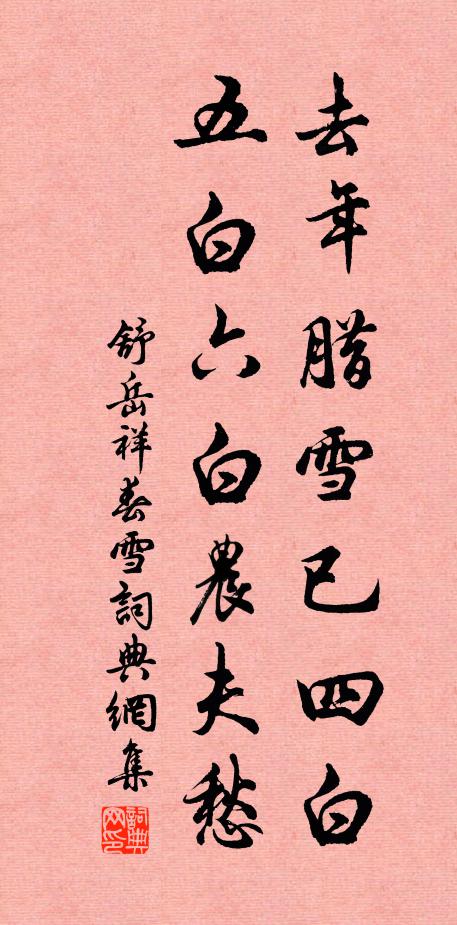 去年腊雪已四白
五白六白農夫愁
舒岳祥春雪詞典網集
詞典
网印